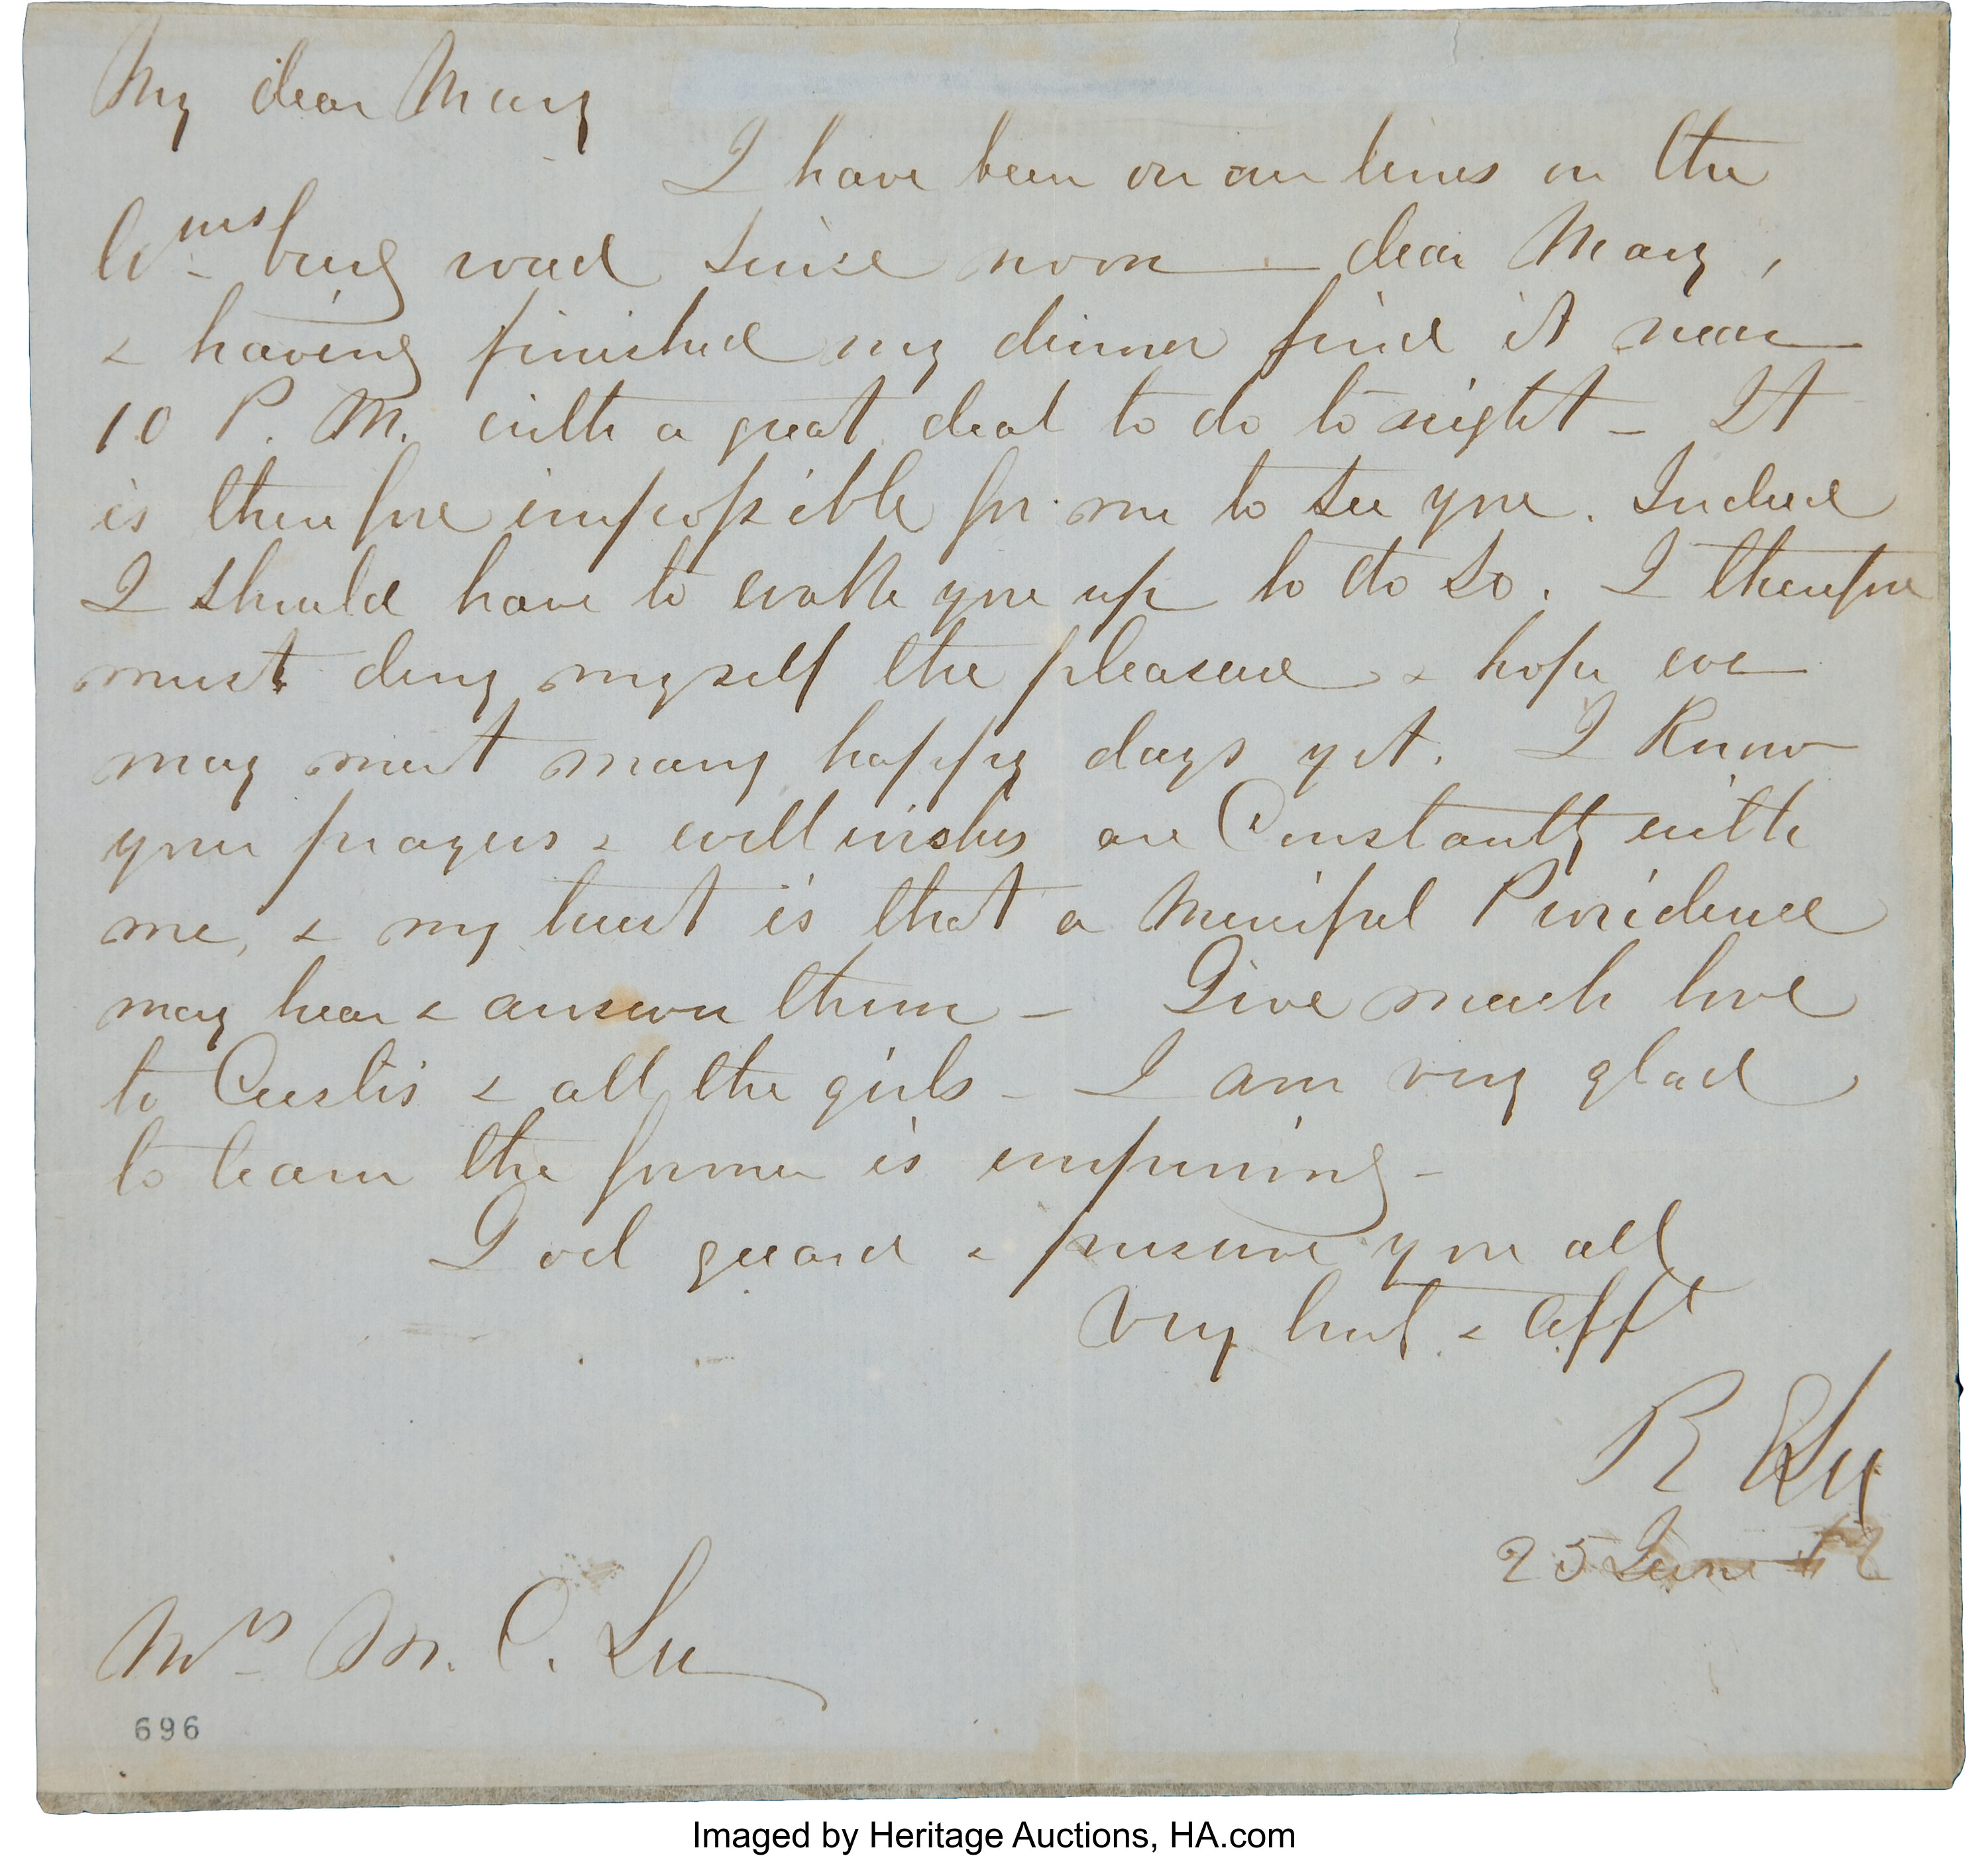 My dear Mary
I have been on our lines on the
Wmsburg road since noon — dear Mary,
& having finished my dinner find it near
10 P. M. with a great deal to do to night – It
is therefore impossible for me to see you. Indeed
I should have to wake you up to do so. I therefore
must deny myself the pleasure & hope we
may meet many happy days yet. I Know
your prayers & well wishes are Constantly with
me, & my trust is that a Merciful Providence
may hear & answer them – Give much love
to Custis & all the girls – I am very glad
to learn the former is improving –
God guard & preserve you all
Very truly & afft
R E Lee
25 June
Mrs M. C. Lee
696
Imaged by Heritage Auctions, HA.com